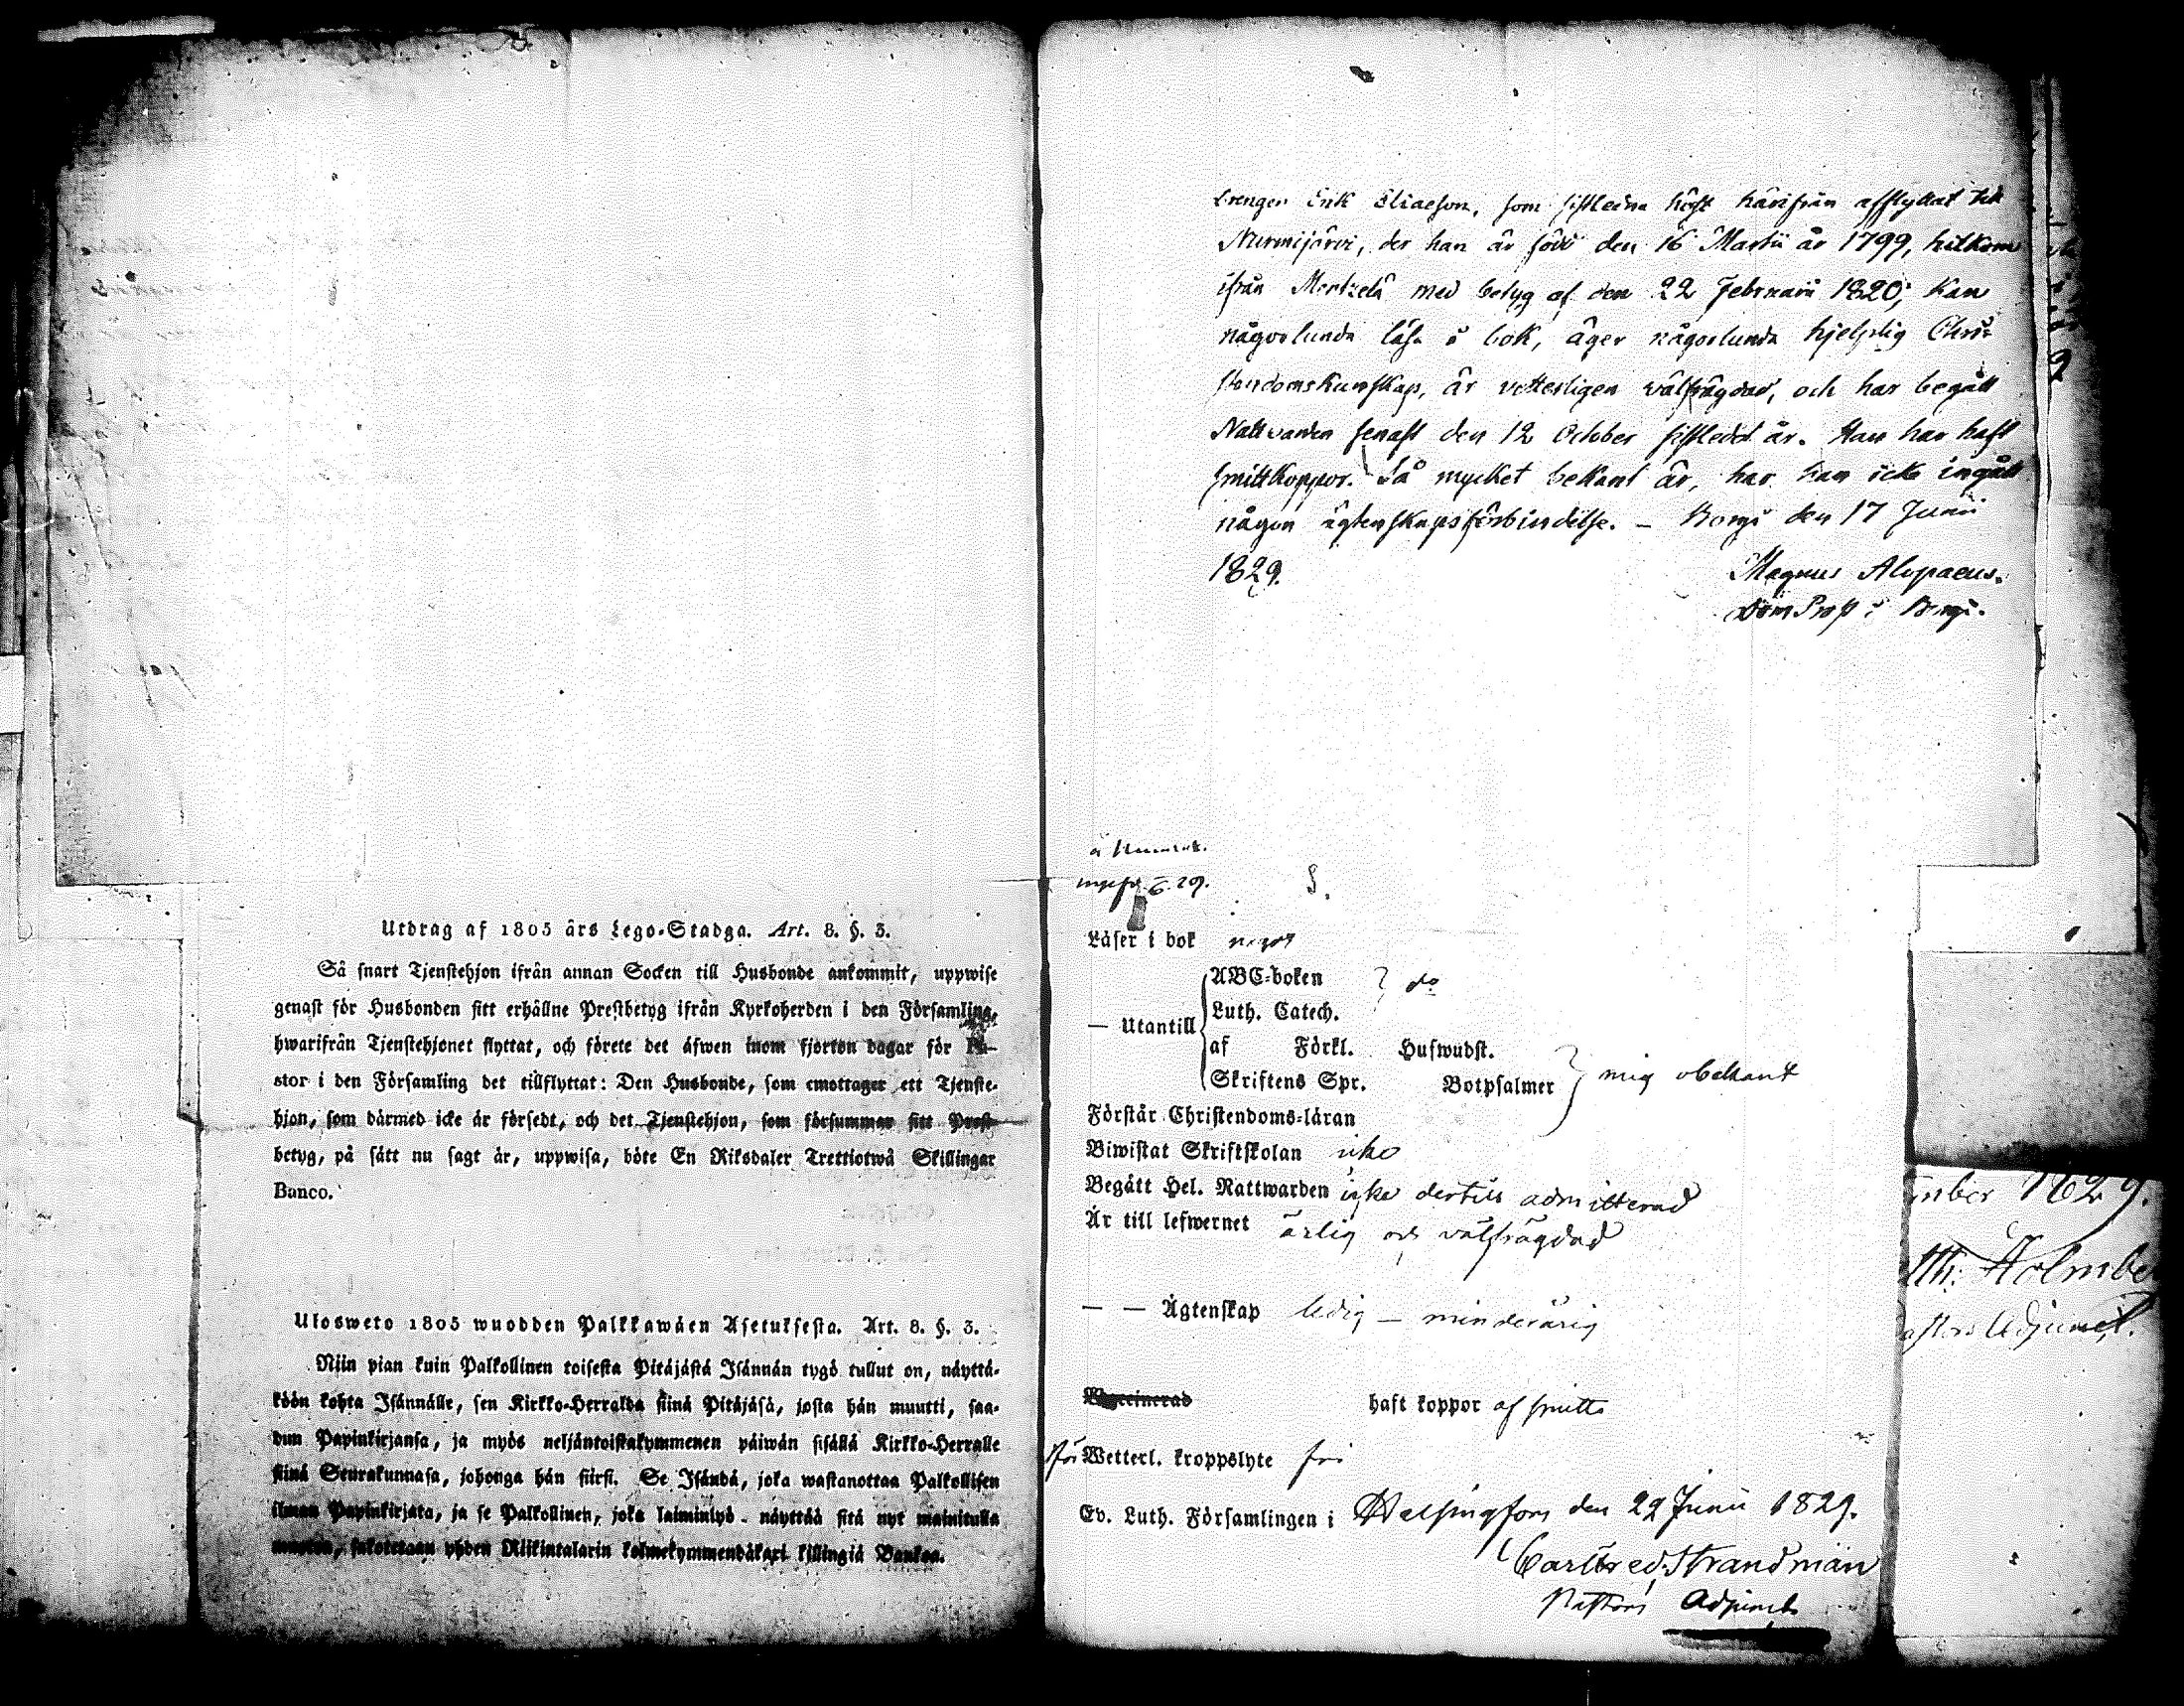 Utdrag af 1805 års Lego-Stadga. Art. 8. §. 3.
Så snart Tjenstehjon ifrån annan Socken till Husbonde ankommit, uppwise
genast för Husbonden sitt erhållne Prestbetyg ifrån Kyrkoherden i den Församling,
hwarifrån Tjenstehjonet flyttat, och förete det äfwen inom fjorton dagar för Pa-
stor i den Församling det tillflyttat: Den Husbonde, som emottager ett Tjenste-
hjon, som därmed icke är försedt, och det Tjenstehjon, som försummar sitt Prest-
betyg, på sätt nu sagt är, uppwisa, böte En Riksdaler Trettiotwå Skillingar
Banco.
Ulosweto 1805 wuodden Palkkawäen Asetuksesta. Art. 8. §. 3.
Niin pian kuin Palkollinen toisesta Pitäjästä Isännän tygö tullut on, näyttä-
köön kohta Isännälle, sen Kirkko-Herralda siinä Pitäjäsä, josta hän muutti, saa-
dun Papinkirjansa, ja myös neljäntoistakymmenen päiwän sisällä Kirkko-Herralle
siinä Seurakunnasa, johonga hän siirsi. Se Isändä, joka wastanottaa Palkollisen
ilman Papinkirjata, ja se Palkollinen, joka laiminlyö näyttää sitä nyt mainitulla
muoton, sakotetaan yhden Riikintalarin kolmekymmendäkaxi killingiä Bankoa.
Drengen Erik Eliaeson, som sistledna höst härifrån afflyttat till
Nurmijärvi, der han är född den 16 Martii år 1799, hitkom
ifrån Mentzelä med betyg af den 22 Februarii 1820; Kan
någorlunda läsa i bok, äger någorlunda hjelplig Chris-
tendomskunskap, är vetterligen välfrägdad, och har begått
Nattvarden senast den 12 October sistledit år. Han har haft
smittkoppor. Så mycket bekant är, har han icke ingått
någon ägtenskapsförbindelse. — Borgå den 17 Junii
1829.
Magnus Alopaeus.
DomProst i Borgå.
6. 29.
Läser i bok något
— Utantill
ABC-boken
Luth. Catech.
do
af Förkl. Huswudst.
Skriftens Spr. Botpsalmer
mig obekant
Förstår Christendoms-läran
Biwistat Skriftskolan icke
Begått Hel. Nattwarden icke dertill admitterad
Är till lefwernet ärlig och välfrägdad
— — Ägtenskap ledig — minderårig
Vaccinerad haft koppor af smitta
för Wetterl. kroppslyte fri
Ev. Luth. Församlingen i Helsingfors den 29 Junii 1829.
Carl Fred. Strandman
Pastors Adjunct
mber 1829.
th. Holmbe
astors Adjunct.